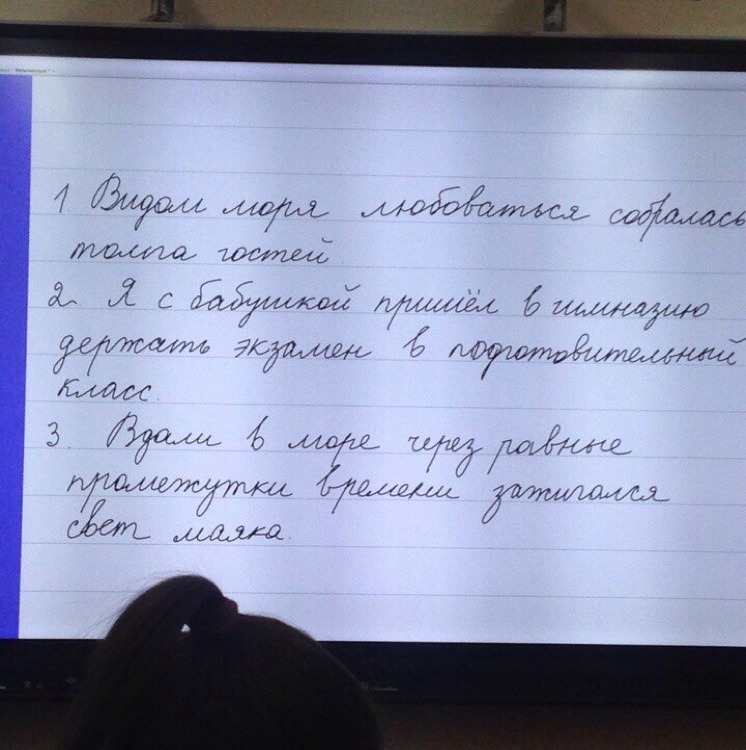 1 Видом моря любоваться собралась
толпа гостей
2. Я с бабушкой пришёл в гимназию
держать экзамен в подготовительный
класс.
3. Вдали в море через равные
промежутки времени зажигался
свет маяка.